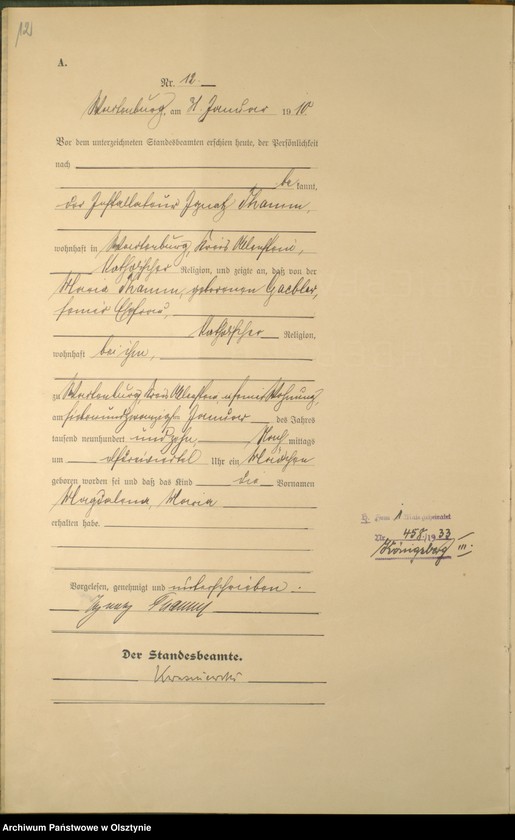 12
A.
Nr. 12.
Wartenburg, am 31. Januar 1910
Vor dem unterzeichneten Standesbeamten erschien heute, der Persönlichkeit
nach
be kannt,
der Installateur Ignatz Thamm,
wohnhaft in Wartenburg, Kreis Allenstein,
katholischer Religion, und zeigte an, daß von der
Maria Thamm, geborenen Gaebler,
seiner Ehefrau,
katholischer Religion,
wohnhaft bei ihm,
zu Wartenburg, Kreis Allenstein, in seiner Wohnung,
am siebenundzwanzigsten Januar des Jahres
tausend neunhundert und zehn, Nach mittags
um Uhr ein Mädchen
geboren worden sei und daß das Kind die Vornamen
Magdalena, Maria
erhalten habe.
Vorgelesen, genehmigt und unterschrieben.
Ignatz Thamm
Der Standesbeamte.
1
Nr. 458/1933
Königsberg III.
Archiwum Państwowe w Olsztynie